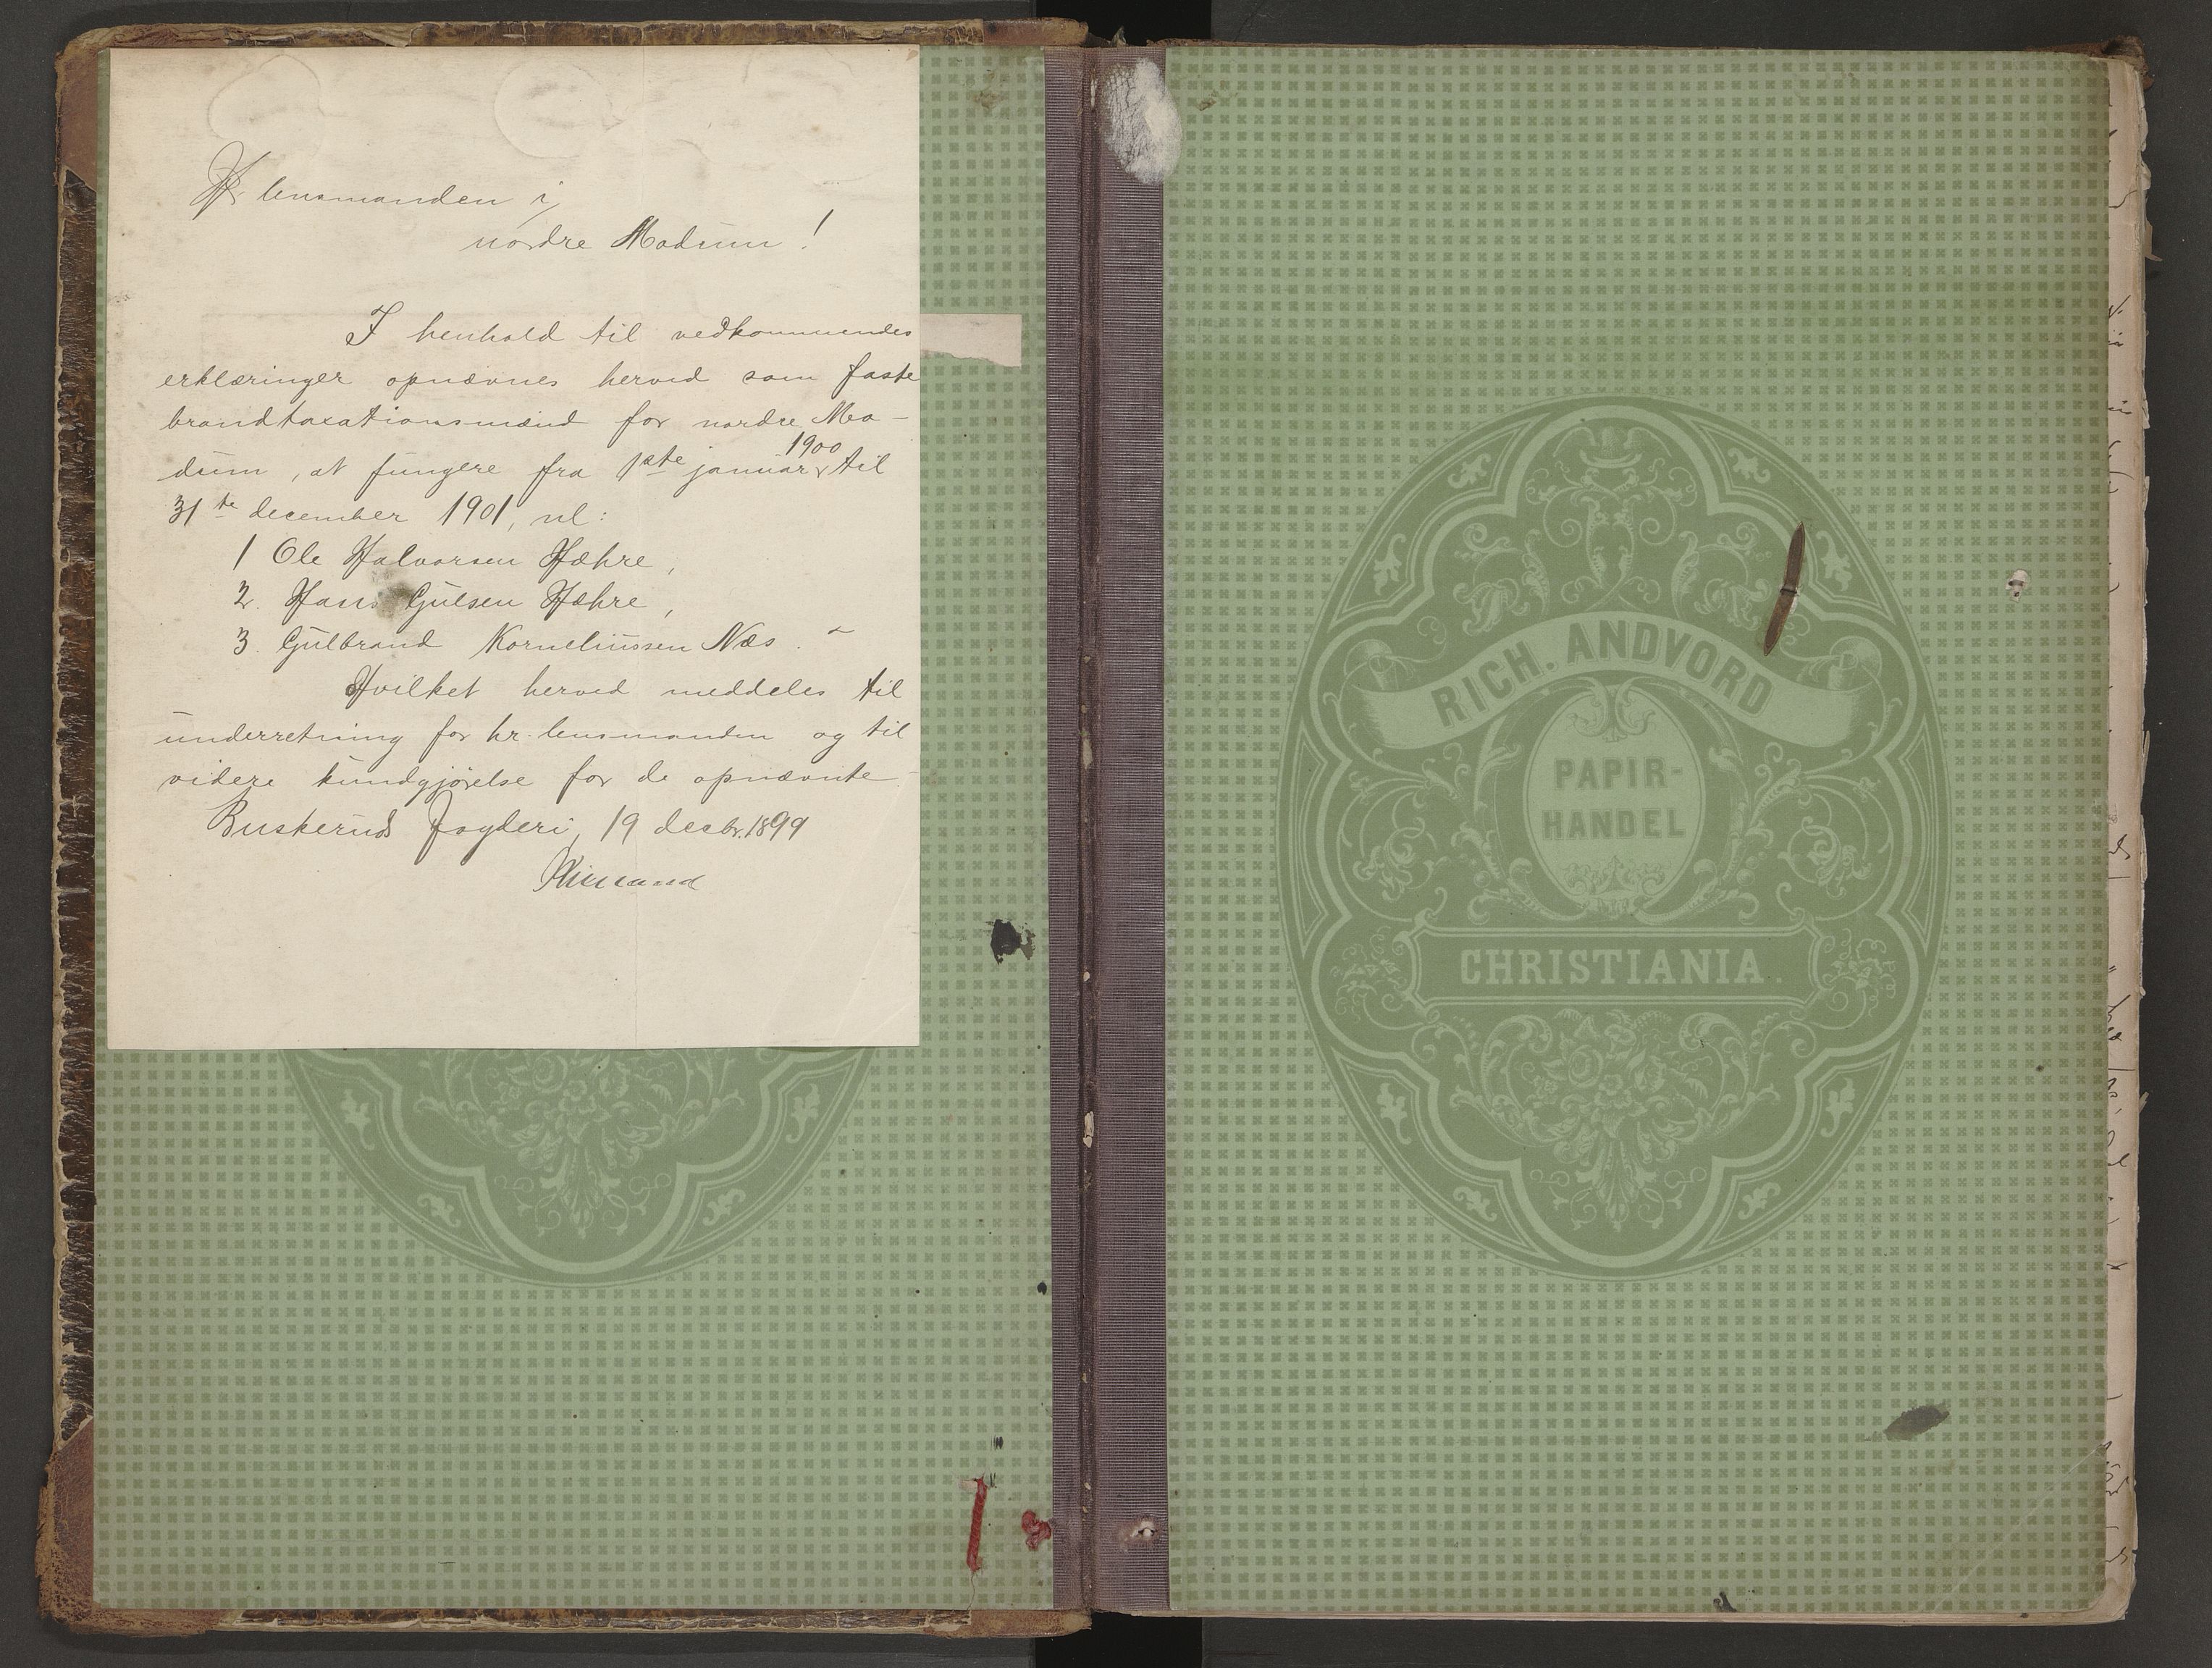 Hr lensmanden i
nordre Modum!
I henhold til vedkommendes
erklæringer opnævnes herved som faste
brandtaxationsmænd for nordre Mo-
dum, at fungere fra 1ste januar 1900 til
31te december 1901, nl:
1 Ole Halvorsen Hæhre,
2. Hans Gulsen Hæhre,
3. Gulbrand Korneliussen Næs.
Hvilket herved meddeles til
underretning for hr. lensmanden og til
videre kundgjørelse for de opnævnte
Buskeruds Fogderi, 19 decbr. 1899
RICH. ANDVORD
PAPIR-
HANDEL
CHRISTIANIA.